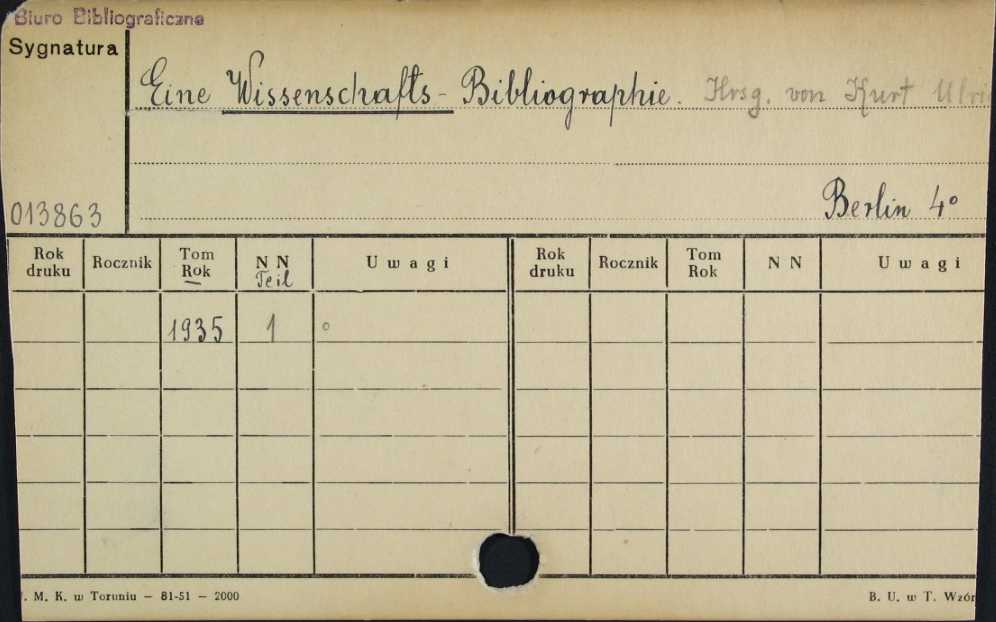 Biuro Bibliograficzne
Sygnatura
Eine Wissenschafts-Bibliographie. Hrsg. von Kurt
Berlin 4°
013863
Rok druku Rocznik Tom Rok N N Teil Uwagi Rok druku Rocznik Tom Rok N N Uwagi
1935 1 °
M. K. w Toruniu — 81-51 — 2000
B. U. w T.